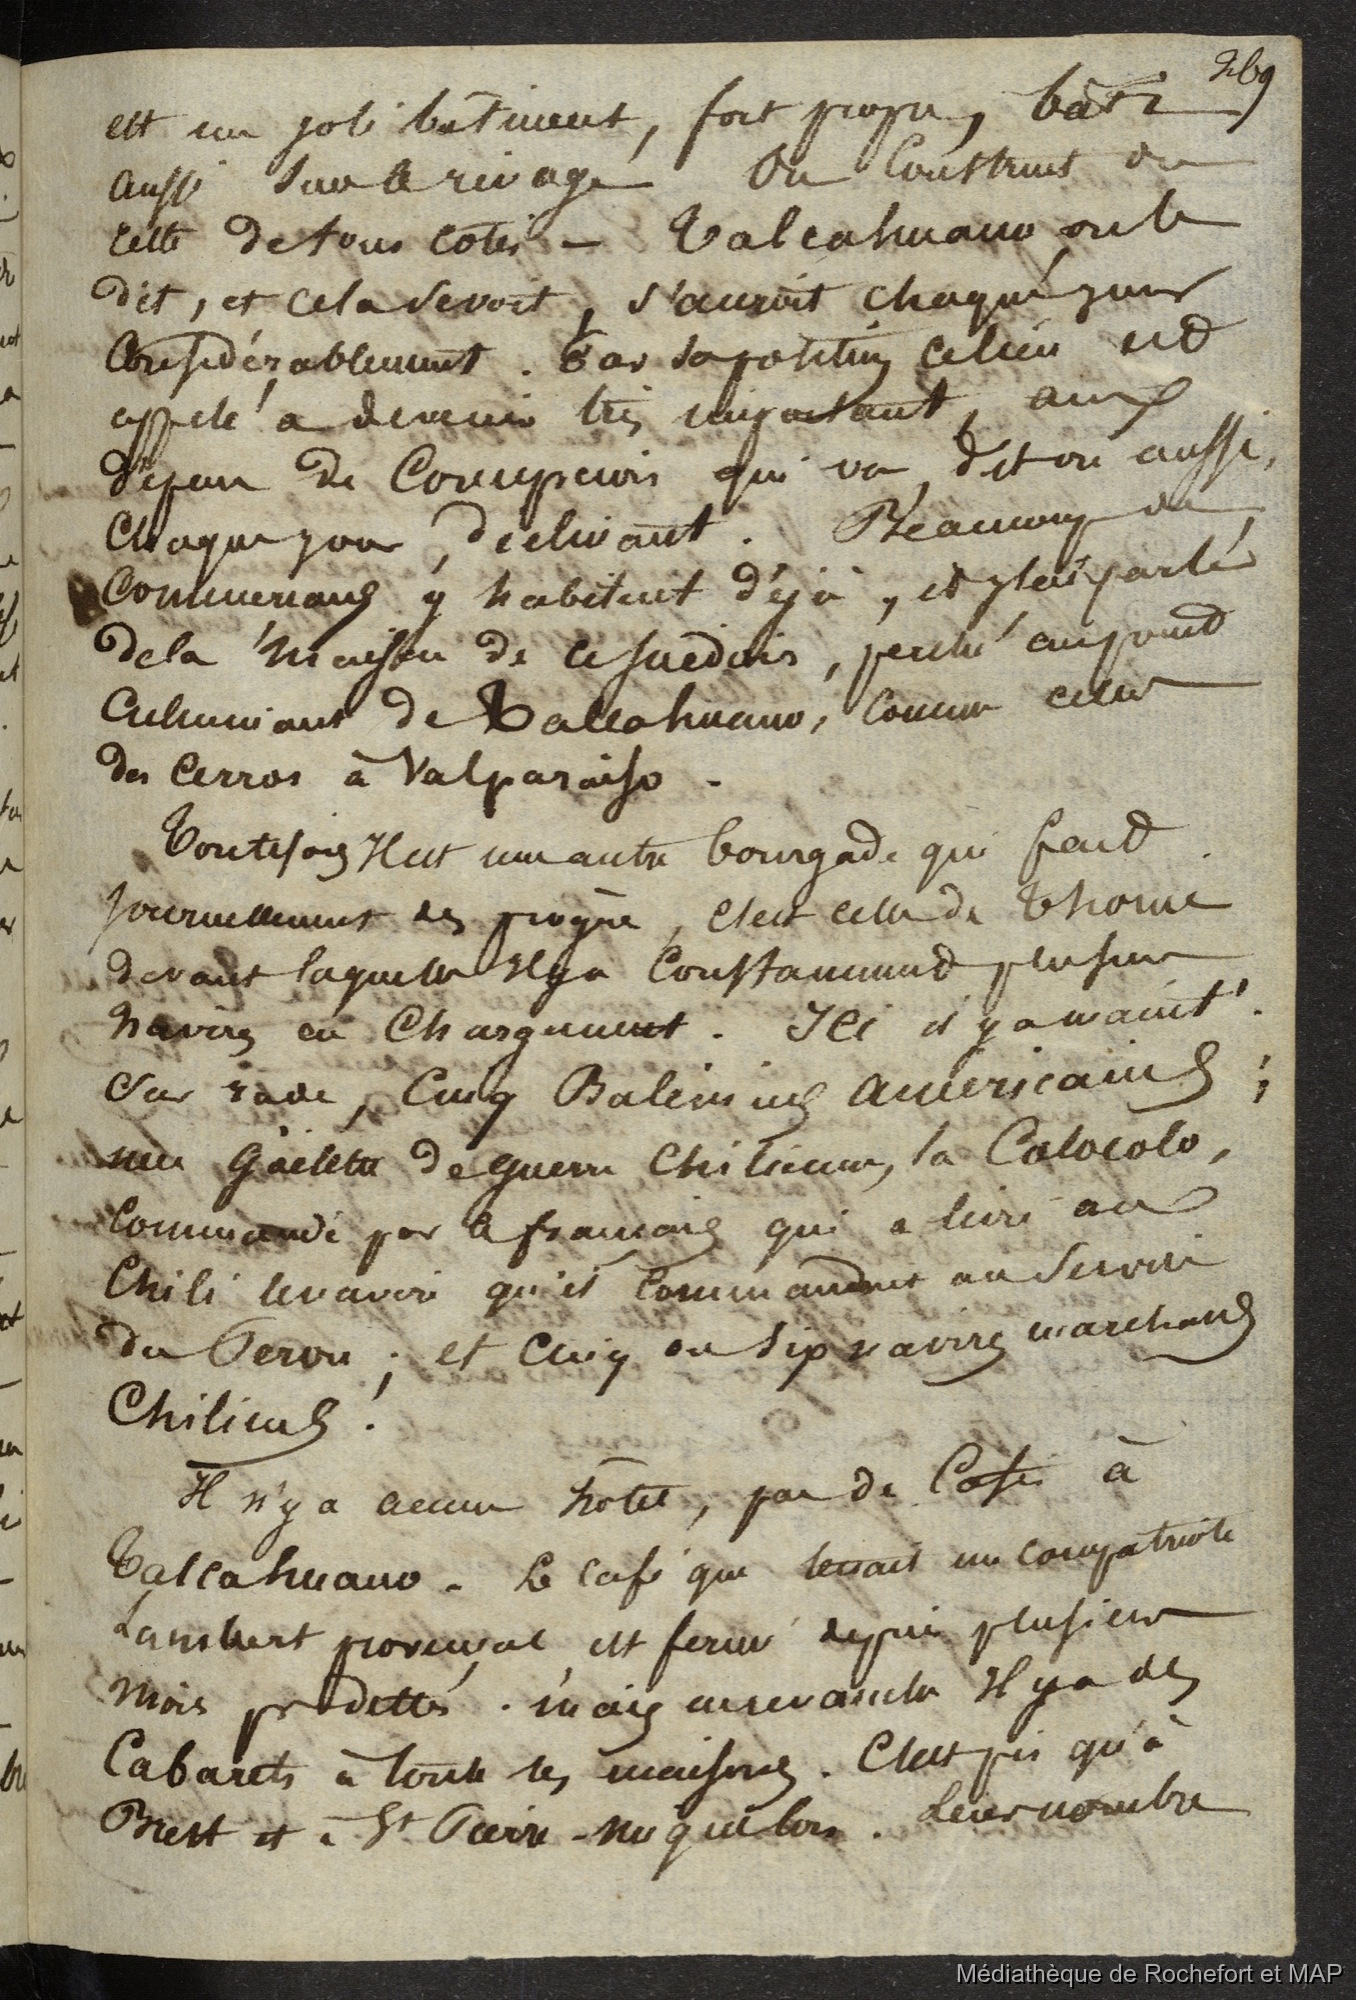 269
est un joli bâtiment, fort propre, bâti
aussi sur le rivage. On Construit du
reste de tous cotés – Talcahuano, on le
dit, et cela se voit, s'accroit chaque jour
Considérablement. Par sa position ce lieu est
appelé à devenir très important, aux
dépens de Concepcion qui va, dit on aussi,
Chaque jour, declinant. Beaucoup de
Commercans y habitent déjà, et j'ai parlé
de la maison de ce suédois, perché au point
Culminant de Talcahuano, Comme celles
des Cerros à Valparaiso –
Toutefois Il est une autre bourgade qui fait
journellement des progrès, c'est celle de Thomé
devant laquelle Il y a Constamment plusieurs
navires en Chargement. Ici il y a maint.t
Sur rade, Cinq Baleiniers américains ;
une Goëlette de guerre Chilienne, la Colocolo,
Commandé par le français qui a livré au
Chili le navire qu'il Commandait au Service
du Perou ; et Cinq ou Six navires marchands
Chiliens.
Il n'y a aucun hôtel, pas de Cafés à
Talcahuano – Le Café que tenait un compatriote
Lambert provençal est fermé depuis plusieurs
mois pr dettes. Mais en revanche Il y a des
Cabarets à toutes les maisons. C'est pis qu'à
Brest et à St Pierre-Miquelon. Leur nombre
Médiathèque de Rochefort et MAP